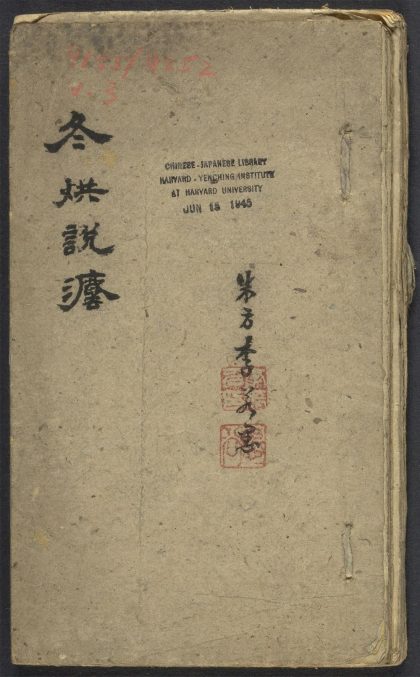 冬烘說
CHINESE-JAPANESE LIBRARY
HARVARD-YENCHING INSTITUTE
AT HARVARD UNIVERSITY
JUN 15 1945
朱方李若愚